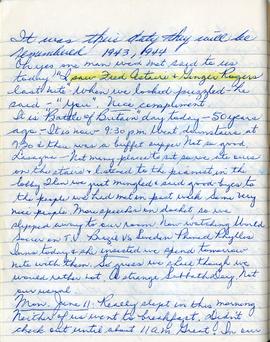 It was their duty they will be
remembered 1943, 1944
Oh yes one man we'd met said to us
today "I saw Fred Astaire & Ginger Rogers
last nite" When we looked puzzled - he
said - "You". Nice compliment.
It is Battle of Britain day today - 50 years
ago - It is now 9:30 p.m. Went downstairs at
7:30 & there was a buffet supper Not so good
Lasagne - Not many places to sit so we ate ours
on the stairs & listened to the pianist in the
lobby Then we just mingled & said good byes to
the people we had met in past week Some very
nice people. More speeches on docket so we
slipped away to our room Now watching World
Soccer on T.V. Brazil Vs Sweden Phoned
Inns today & she insisted we spend tomorrow
nite with them. So guess we'll tho' we
would rather not. A strange Sabbath Day Not
our usual.
Mon. June 11: Really slept in this morning
Neither of us went to breakfast. Didn't
check out until about 11 a.m. Great! In our